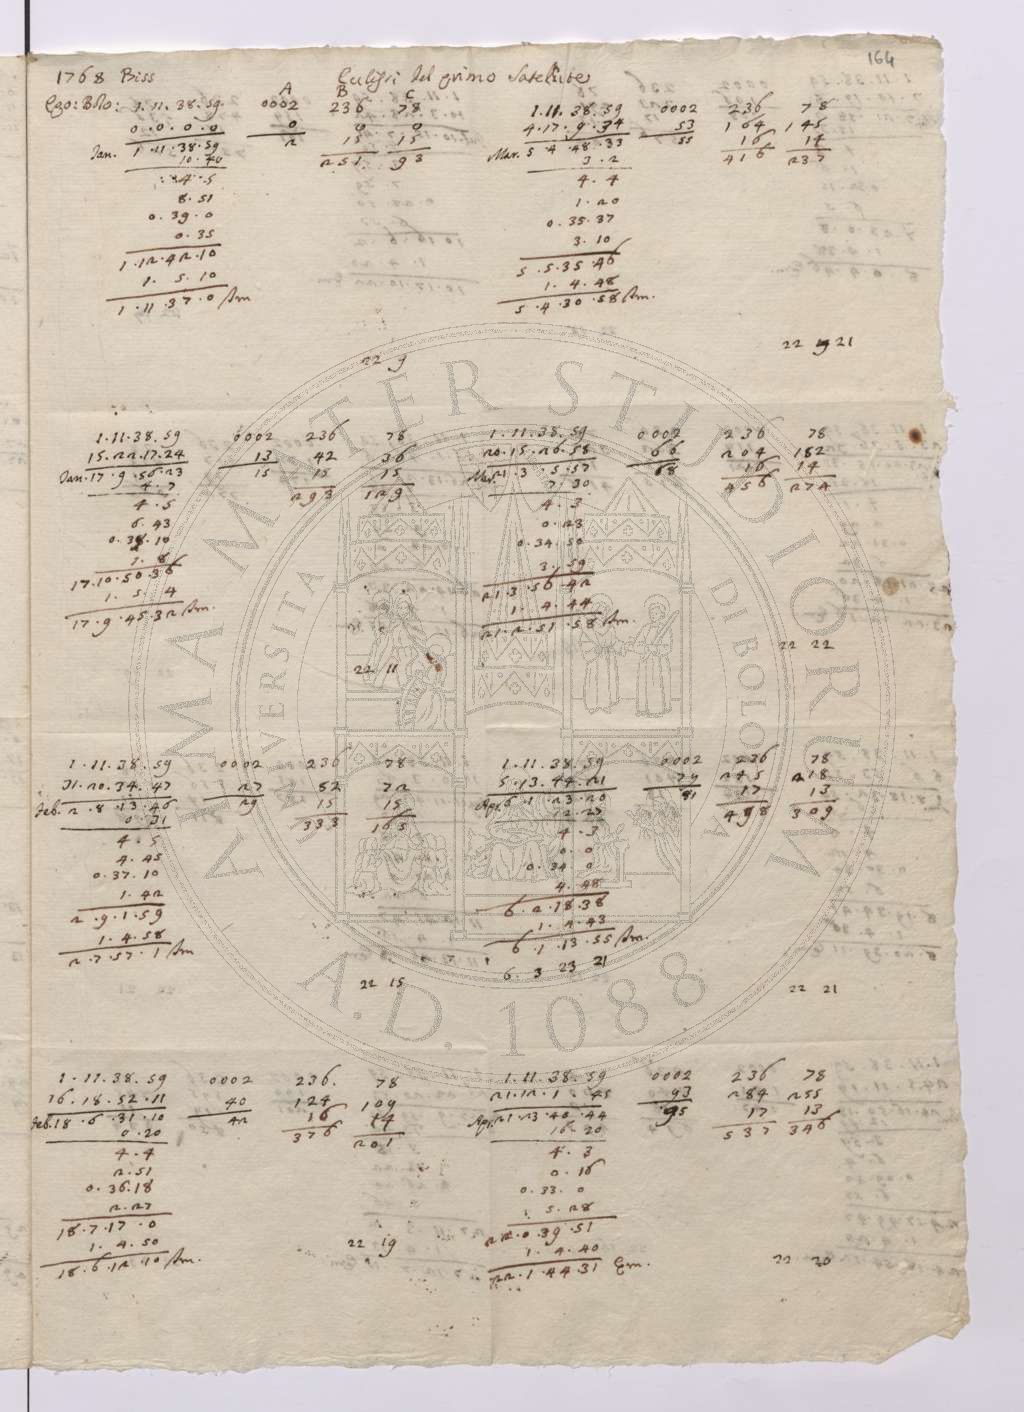 164
1768 Biss Eclissi del primo Satellite
A B C
1.11.38.59 0002 236 78
0.0.0.0 0 0 0
Jan. 1.11.38.59 2 15 15
10.40 251 93
4.5
8.51
0.39.0
0.35
1.12.42.10
1.5.10
1.11.37.0 Im
22 9
1.11.38.59 0002 236 78
4.17.9.34 53 164 145
Mar. 5.4.48.33 55 16 14
3.2 416 237
4.4
1.20
0.35.37
3.10
5.5.35.46
1.4.48
5.4.30.58 Im.
22 9 21
1.11.38.59 0002 236 78
15.22.17.24 13 42 36
Jan. 17.9.56.23 15 15 15
4.7 293 129
4.5
6.43
0.38.10
1.8
17.10.50.36
1.5.4
17.9.45.32 Im.
22 11
1.11.38.59 0002 236 78
20.15.26.58 66 204 182
Mar. 21.3.5.57 68 16 14
7.30 456 274
4.3
0.23
0.34.50
3.59
21.3.56.42
1.4.44
21.2.51.58 Im.
22 22
1.11.38.59 0002 236 78
31.20.34.47 27 82 72
Feb. 2.8.13.46 29 15 15
0.31 333 165
4.5
4.45
0.37.10
1.42
2.9.1.59
1.4.58
2.7.57.1 Im
22 15
1.11.38.59 0002 236 78
5.13.44.21 79 245 218
Apr. 6.1.23.20 81 17 13
12.27 498 309
4.3
0.0
0.34.0
4.48
6.2.18.38
1.4.43
6.1.13.55 Im.
6. 3 23 21
22 21
1.11.38.59 0002 236. 78
16.18.52.11 40 124 109
Feb. 18.6.31.10 42 16 14
0.20 376 201
4.4
2.51
0.36.18
2.27
18.7.17.0
1.4.50
18.6.12.10 Im.
22 19
1.11.38.59 0002 236 78
21.12.1.45 93 284 255
Apr. 21.23.40.44 95 17 13
16.20 537 346
4.3
0.16
0.33.0
5.28
22.0.39.51
1.4.40
22.1.44.31 Em.
22 20
ALMA MATER STUDIORUM
UNIVERSITÀ DI BOLOGNA
A.D. 1088